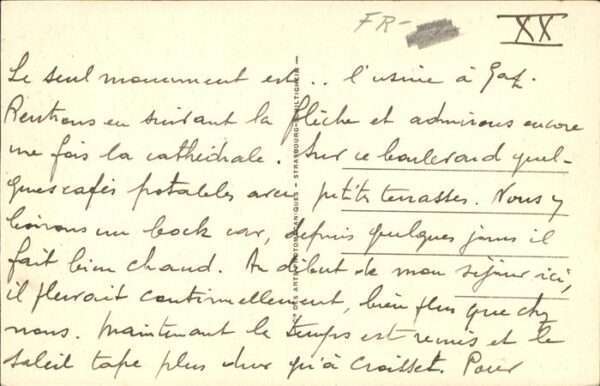 FR-
XX
Le seul monument est... l'usine à Gaz.
Rentrons en suivant la flèche et admirons encore
une fois la cathédrale. Sur ce boulevard quel-
ques cafés potables avec petites terrasses. Nous y
boirons un bock car, depuis quelques jours il
fait bien chaud. Au début de mon séjour ici,
il pleuvait continuellement, bien plus que chez
nous. Maintenant le temps est remis et le
soleil tape plus dur qu'à Croisset. Pour
DES ARTS PHOTOMÉCANIQUES - STRASBOURG-SCHILTIGHEIM -